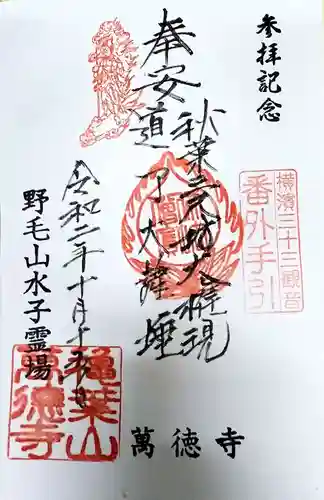 参拝記念
横濱三十三観音
番外手引
秋葉三尺坊大権現
奉安道了大薩埵
令和二年十月十五日
野毛山水子霊場
萬徳寺
萬徳寺